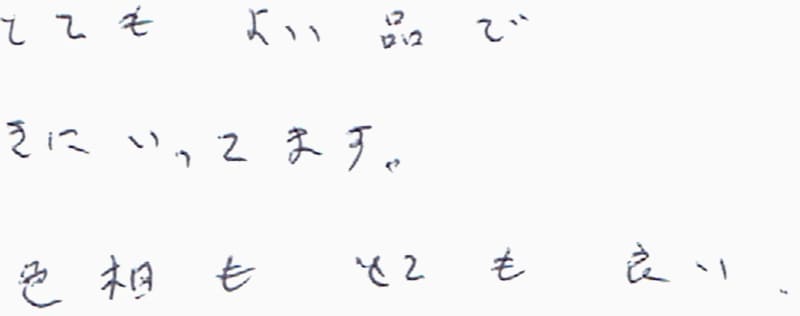 とても よい 品 で
きに いってます。
色相も とても 良い.